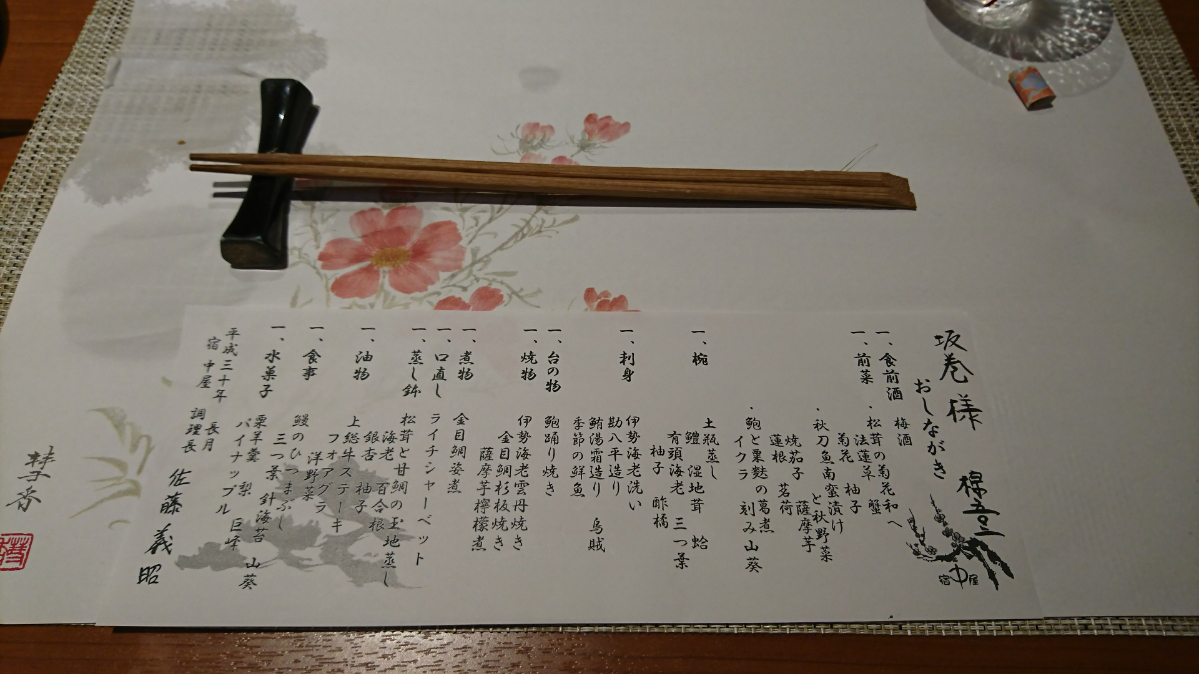 坂巻様
おしながき
宿中屋
一、食前酒 梅酒
一、前菜 ・松茸の菊花和へ
法蓮草 蟹
菊花 柚子
・秋刀魚南蛮漬け
と秋野菜
焼茄子 薩摩芋
蓮根 茗荷
・鮑と粟麩の葛煮
イクラ 刻み山葵
一、椀 土瓶蒸し
鱧 湿地茸 蛤
有頭海老 三つ葉
柚子 酢橘
一、刺身 伊勢海老洗い
勘八平造り
鮪湯霜造り 烏賊
季節の鮮魚
一、台の物 鮑踊り焼き
一、焼物 伊勢海老雲丹焼き
金目鯛杉板焼き
薩摩芋檸檬煮
一、煮物 金目鯛姿煮
一、口直し ライチシャーベット
一、蒸し鉢 松茸と甘鯛の玉地蒸し
海老 百合根
銀杏 柚子
一、油物 上総牛ステーキ
フォアグラ
洋野菜
一、食事 鰻のひつまぶし
三つ葉 針海苔 山葵
一、水菓子 栗羊羹 梨 巨峰
パイナップル
平成三十年 長月
宿中屋 調理長 佐藤義昭